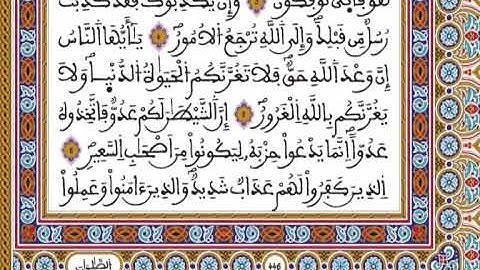 هُوَ فَأَنَّىٰ تُوفَكُونَ وَإِنْ يُّكَذِّبُوكَ فَقَدْ كُذِّبَتْ
رُسُلٌ مِّن قَبْلِكَ وَإِلَى اَللَّهِ تُرْجَعُ اُلْأُمُورُ يَٰأَيُّهَا اَلنَّاسُ
إِنَّ وَعْدَ اَللَّهِ حَقٌّ فَلَا تَغُرَّنَّكُمُ اُلْحَيَوٰةُ اُلدُّنْيَا وَلَا
يَغُرَّنَّكُم بِاللَّهِ اِلْغَرُورُ إِنَّ اَلشَّيْطَٰنَ لَكُمْ عَدُوٌّ فَاتَّخِذُوهُ
عَدُوًّا اِنَّمَا يَدْعُواْ حِزْبَهُۥ لِيَكُونُواْ مِنَ اَصْحَٰبِ اِلسَّعِيرِ
اِلَّذِينَ كَفَرُواْ لَهُمْ عَذَابٌ شَدِيدٌ وَالَّذِينَ ءَامَنُواْ وَعَمِلُواْ